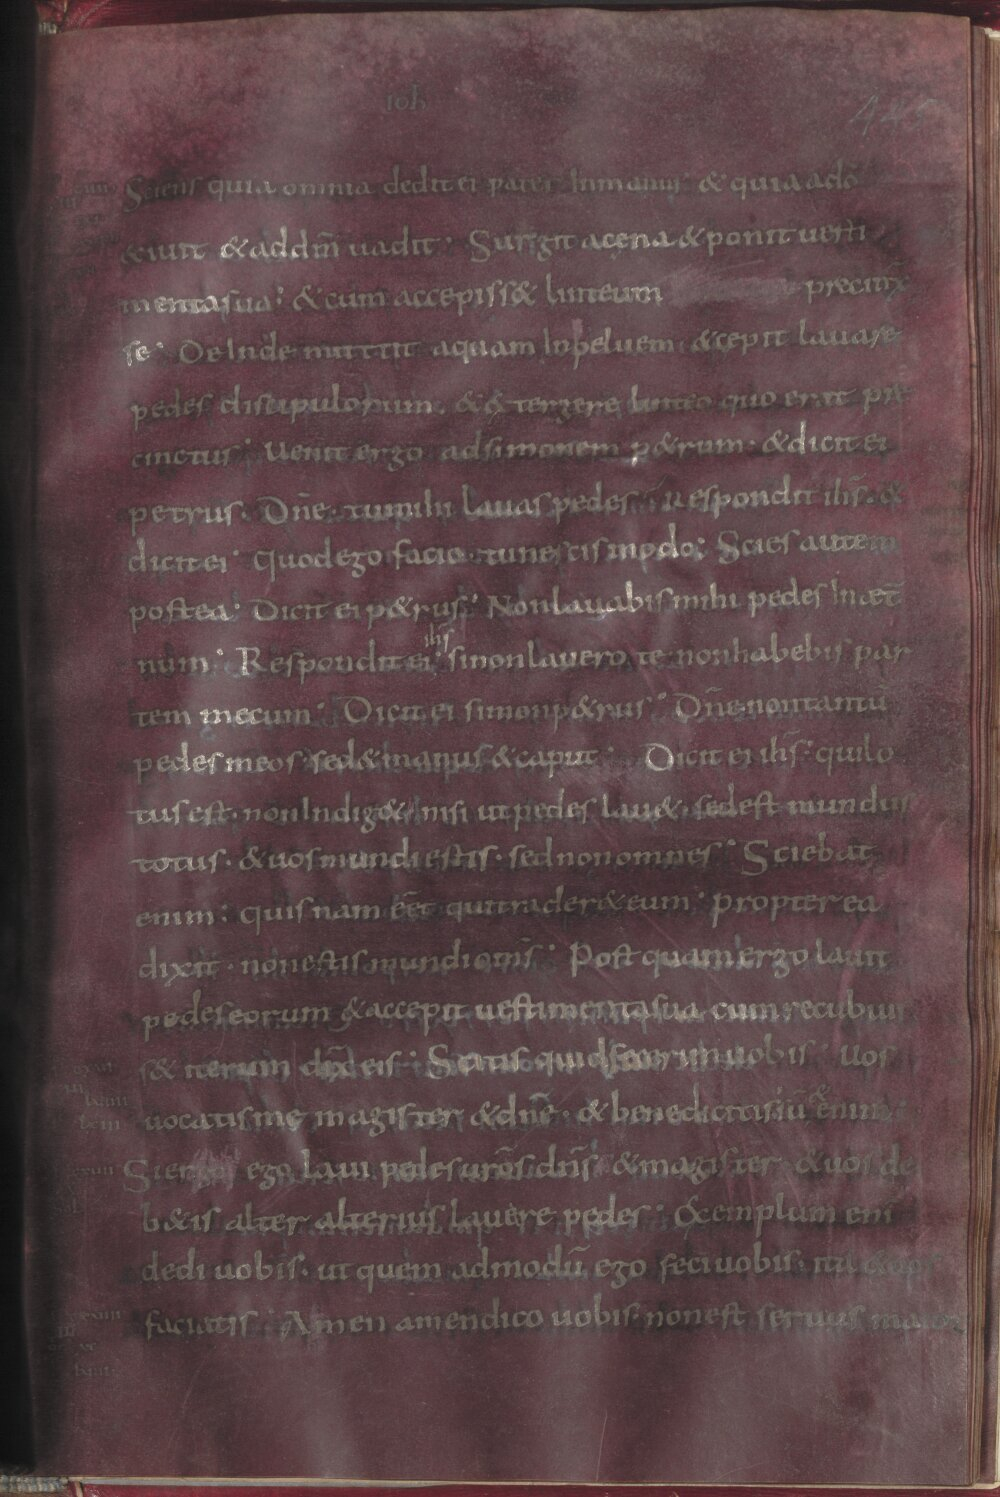 ioh
Sciens quia omnia dedit ei pater In manus & quia ado
&iuit & addm̄ uadit· Surgit acena & ponit uesti
menta sua· & cum accepiss& linteum precinx
se· Deinde mittit aquam Inpeluem· & cepit lauare
pedes discipulorum· & & tergere linteo quo erat pre
cinctus· Uenit ergo adsimonem p&rum· & dicit ei
petrus· Dn̄e· tu mihi lauas pedes· Respondit ih̄s· &
dicit ei· Quod ego facio· tu nescis modo; Scies autem
postea· Dicit ei p&rus· Non lauabis mihi pedes In æt̄
num· Respondit ei ih̄s si non lauero te non habebis par
tem mecum· Dicit ei simon p&rus· Dn̄e non tantū
pedes meos· sed & manus & caput· Dicit ei ih̄s· qui lo
tus est· non Indig& nisi ut pedes lau&· sed est mundus
totus· & uos mundi estis· sed non omnes· Sciebat
enim· quis nam eēt qui trader& eum· propter ea
dixit· non estis mundi om̄s· Post quam ergo lauit
pedes eorum & accepit uestimenta sua cum recubuis
s& iterum dix̄ eis· Scitis quid fecerim uobis· Uos
uocatis me magister & dn̄e· & bene dicitis sū & enim·
Si ergo ego laui pedes ur̄os dn̄s· & magister· & uos de
b&is alter alterius lauere pedes· Exemplum eni
dedi uobis· ut quem admodū ego feci uobis· ita & uos
faciatis· Amen amen dico uobis· non est seruus maior